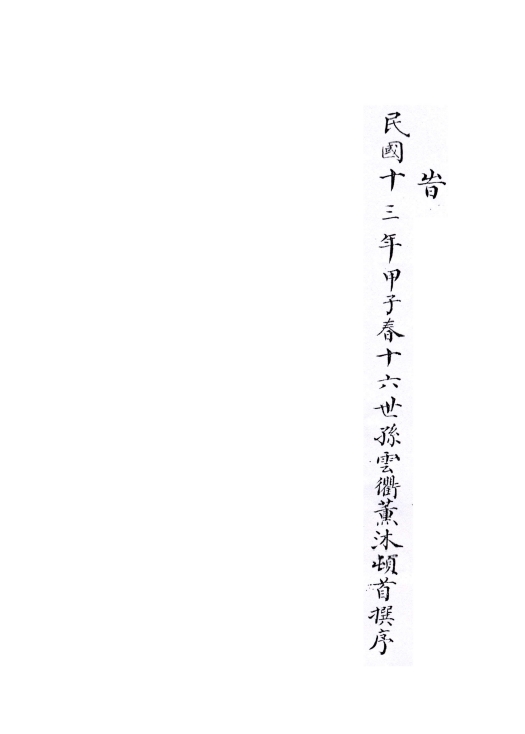 旹
民國十三年甲子春十六世孫雲衢薰沐頓首撰序